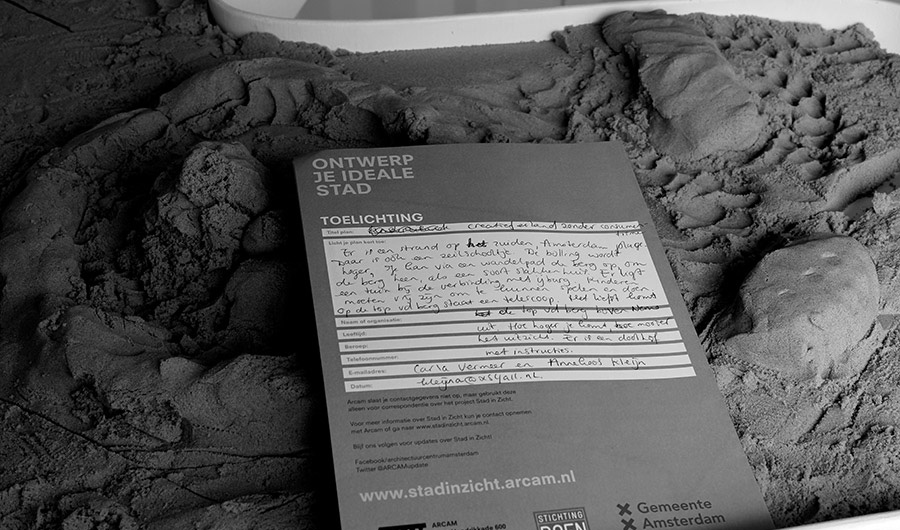 ONTWERP
JE IDEALE
STAD
TOELICHTING
Titel plan: creatief eiland zonder consumentisme
Licht je plan kort toe:
Er is een strand op het zuiden, Amsterdam plage
daar is ook een zeilschooltje. De bolling wordt
hoger, je kan via een wandelpad de berg op, om
de berg heen, als een soort slakkenhuis. Er ligt
een tuin bij de verbinding met IJburg. Kinderen
moeten vrij zijn om te kunnen spelen en doen
op de top vd berg staat een telescoop. Het liefst komt
Naam of organisatie: de top vd berg boven
Leeftijd: uit. Hoe hoger je komt hoe mooier
Beroep: het uitzicht. Er is een doolhof
Telefoonnummer: met instructies.
E-mailadres: Carla Vermeer en Annelies Kleijn
Datum:
Arcam slaat je contactgegevens niet op, maar gebruikt deze
alleen voor correspondentie over het project Stad in Zicht.
Voor meer informatie over Stad in Zicht kun je contact opnemen
met Arcam of ga naar www.stadinzicht.arcam.nl.
Blijf ons volgen voor updates over Stad in Zicht!
Facebook/architectuurcentrumamsterdam
Twitter @ARCAMupdate
www.stadinzicht.arcam.nl
ARCAM
600
STICHTING
DOEN
Gemeente
Amsterdam